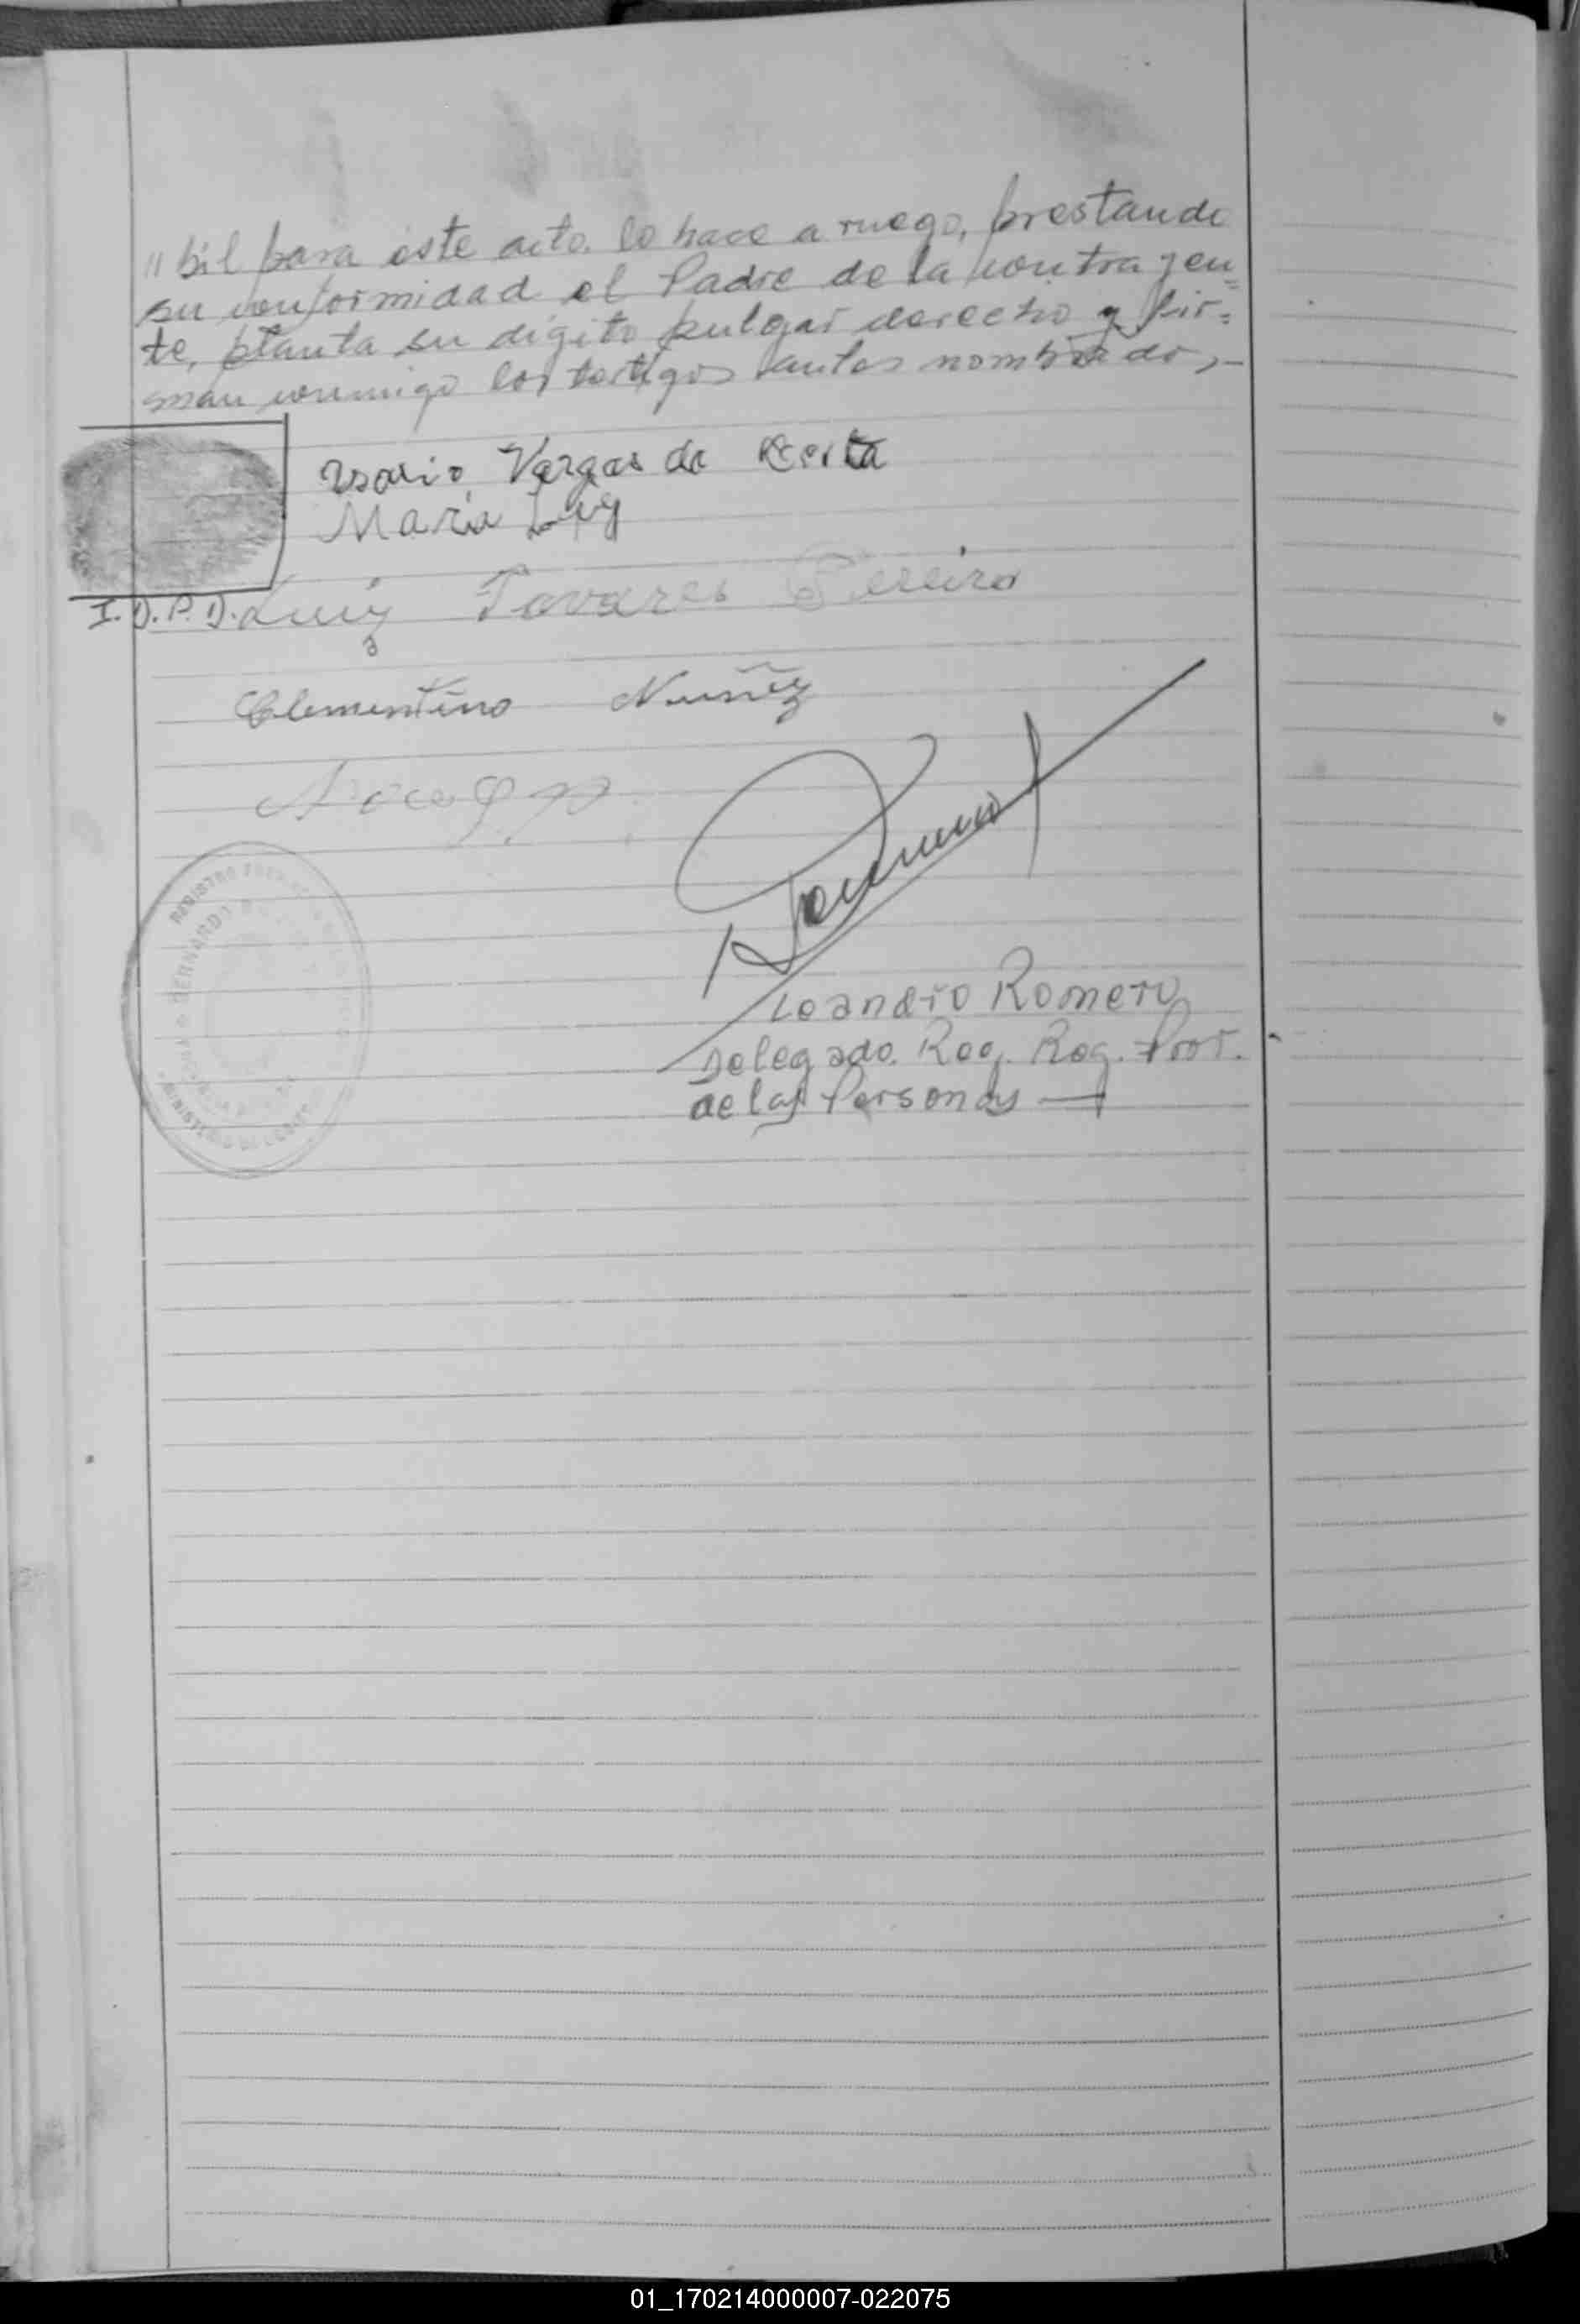 "bil para éste acto, lo hace a ruego, prestando
su conformidad el Padre de la contrayen=
te, planta su dígito pulgar derecho y fir=
man conmigo los testigos antes nombrados,-
Vargas da
Maria Luiz
I.D.P.D. Luiz Tavares Pereira
Clementino Nuñez
Leandro Romero
Delegado. Reg. Prov.
de las Personas
REGISTRO
MINISTERIO DE
01_170214000007-022075